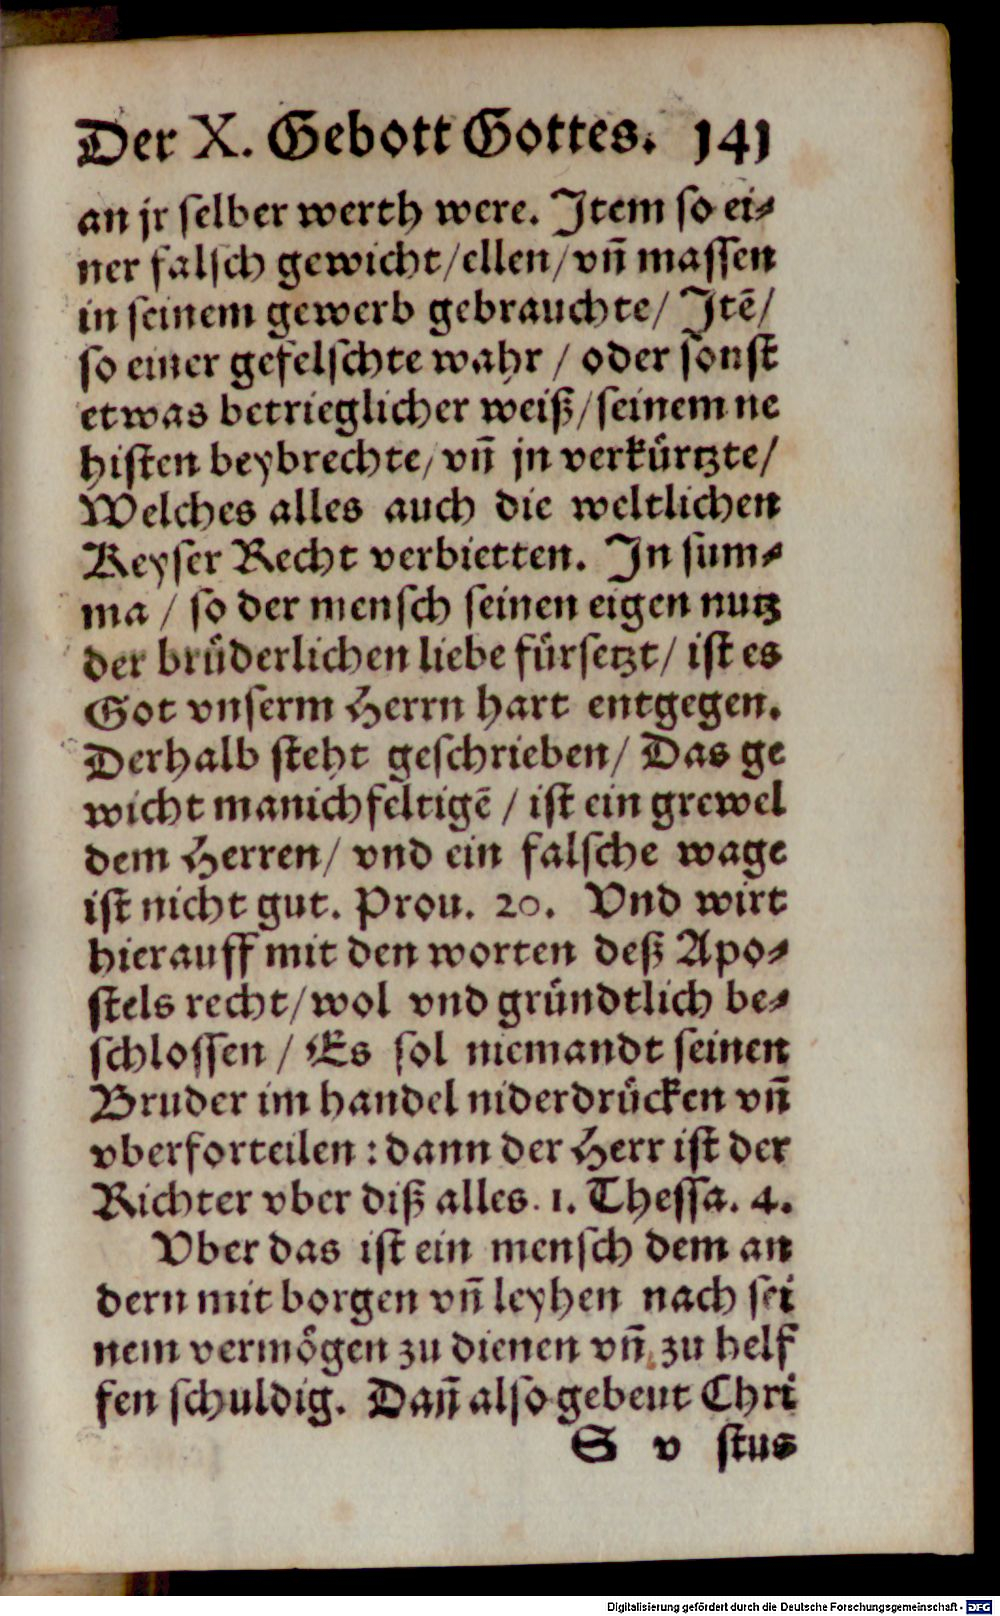 Der X. Gebott Gottes. 141
an jr ſelber werth were. Item ſo ei⸗
ner falſch gewicht/ellen/vñ maſſen
in ſeinem gewerb gebrauchte/ Itē/
ſo einer gefelſchte wahr / oder ſonſt
etwas betrieglicher weiß/ſeinem ne
hiſten beybrechte/vñ jn verkürtzte/
Welches alles auch die weltlichen
Keyſer Recht verbietten. In ſum⸗
ma / ſo der menſch ſeinen eigen nutz
der brüderlichen liebe fürſetzt/ iſt es
Got vnſerm Herrn hart entgegen.
Derhalb ſteht geſchrieben/ Das ge
wicht manichfeltigē / iſt ein grewel
dem Herren/ vnd ein falſche wage
iſt nicht gut. Prou. 20. Vnd wirt
hierauff mit den worten deß Apo⸗
ſtels recht/wol vnd gründtlich be⸗
ſchloſſen / Es ſol niemandt ſeinen
Bruder im handel niderdrücken vñ
vberforteilen : dann der Herr iſt der
Richter vber diß alles. 1. Theſſa. 4.
Vber das iſt ein menſch dem an
dern mit borgen vñ leyhen nach ſei
nem vermögen zu dienen vñ zu helf
fen ſchuldig. Dañ alſo gebeut Chri
S v ſtus
Digitalisierung gefördert durch die Deutsche Forschungsgemeinschaft - DFG